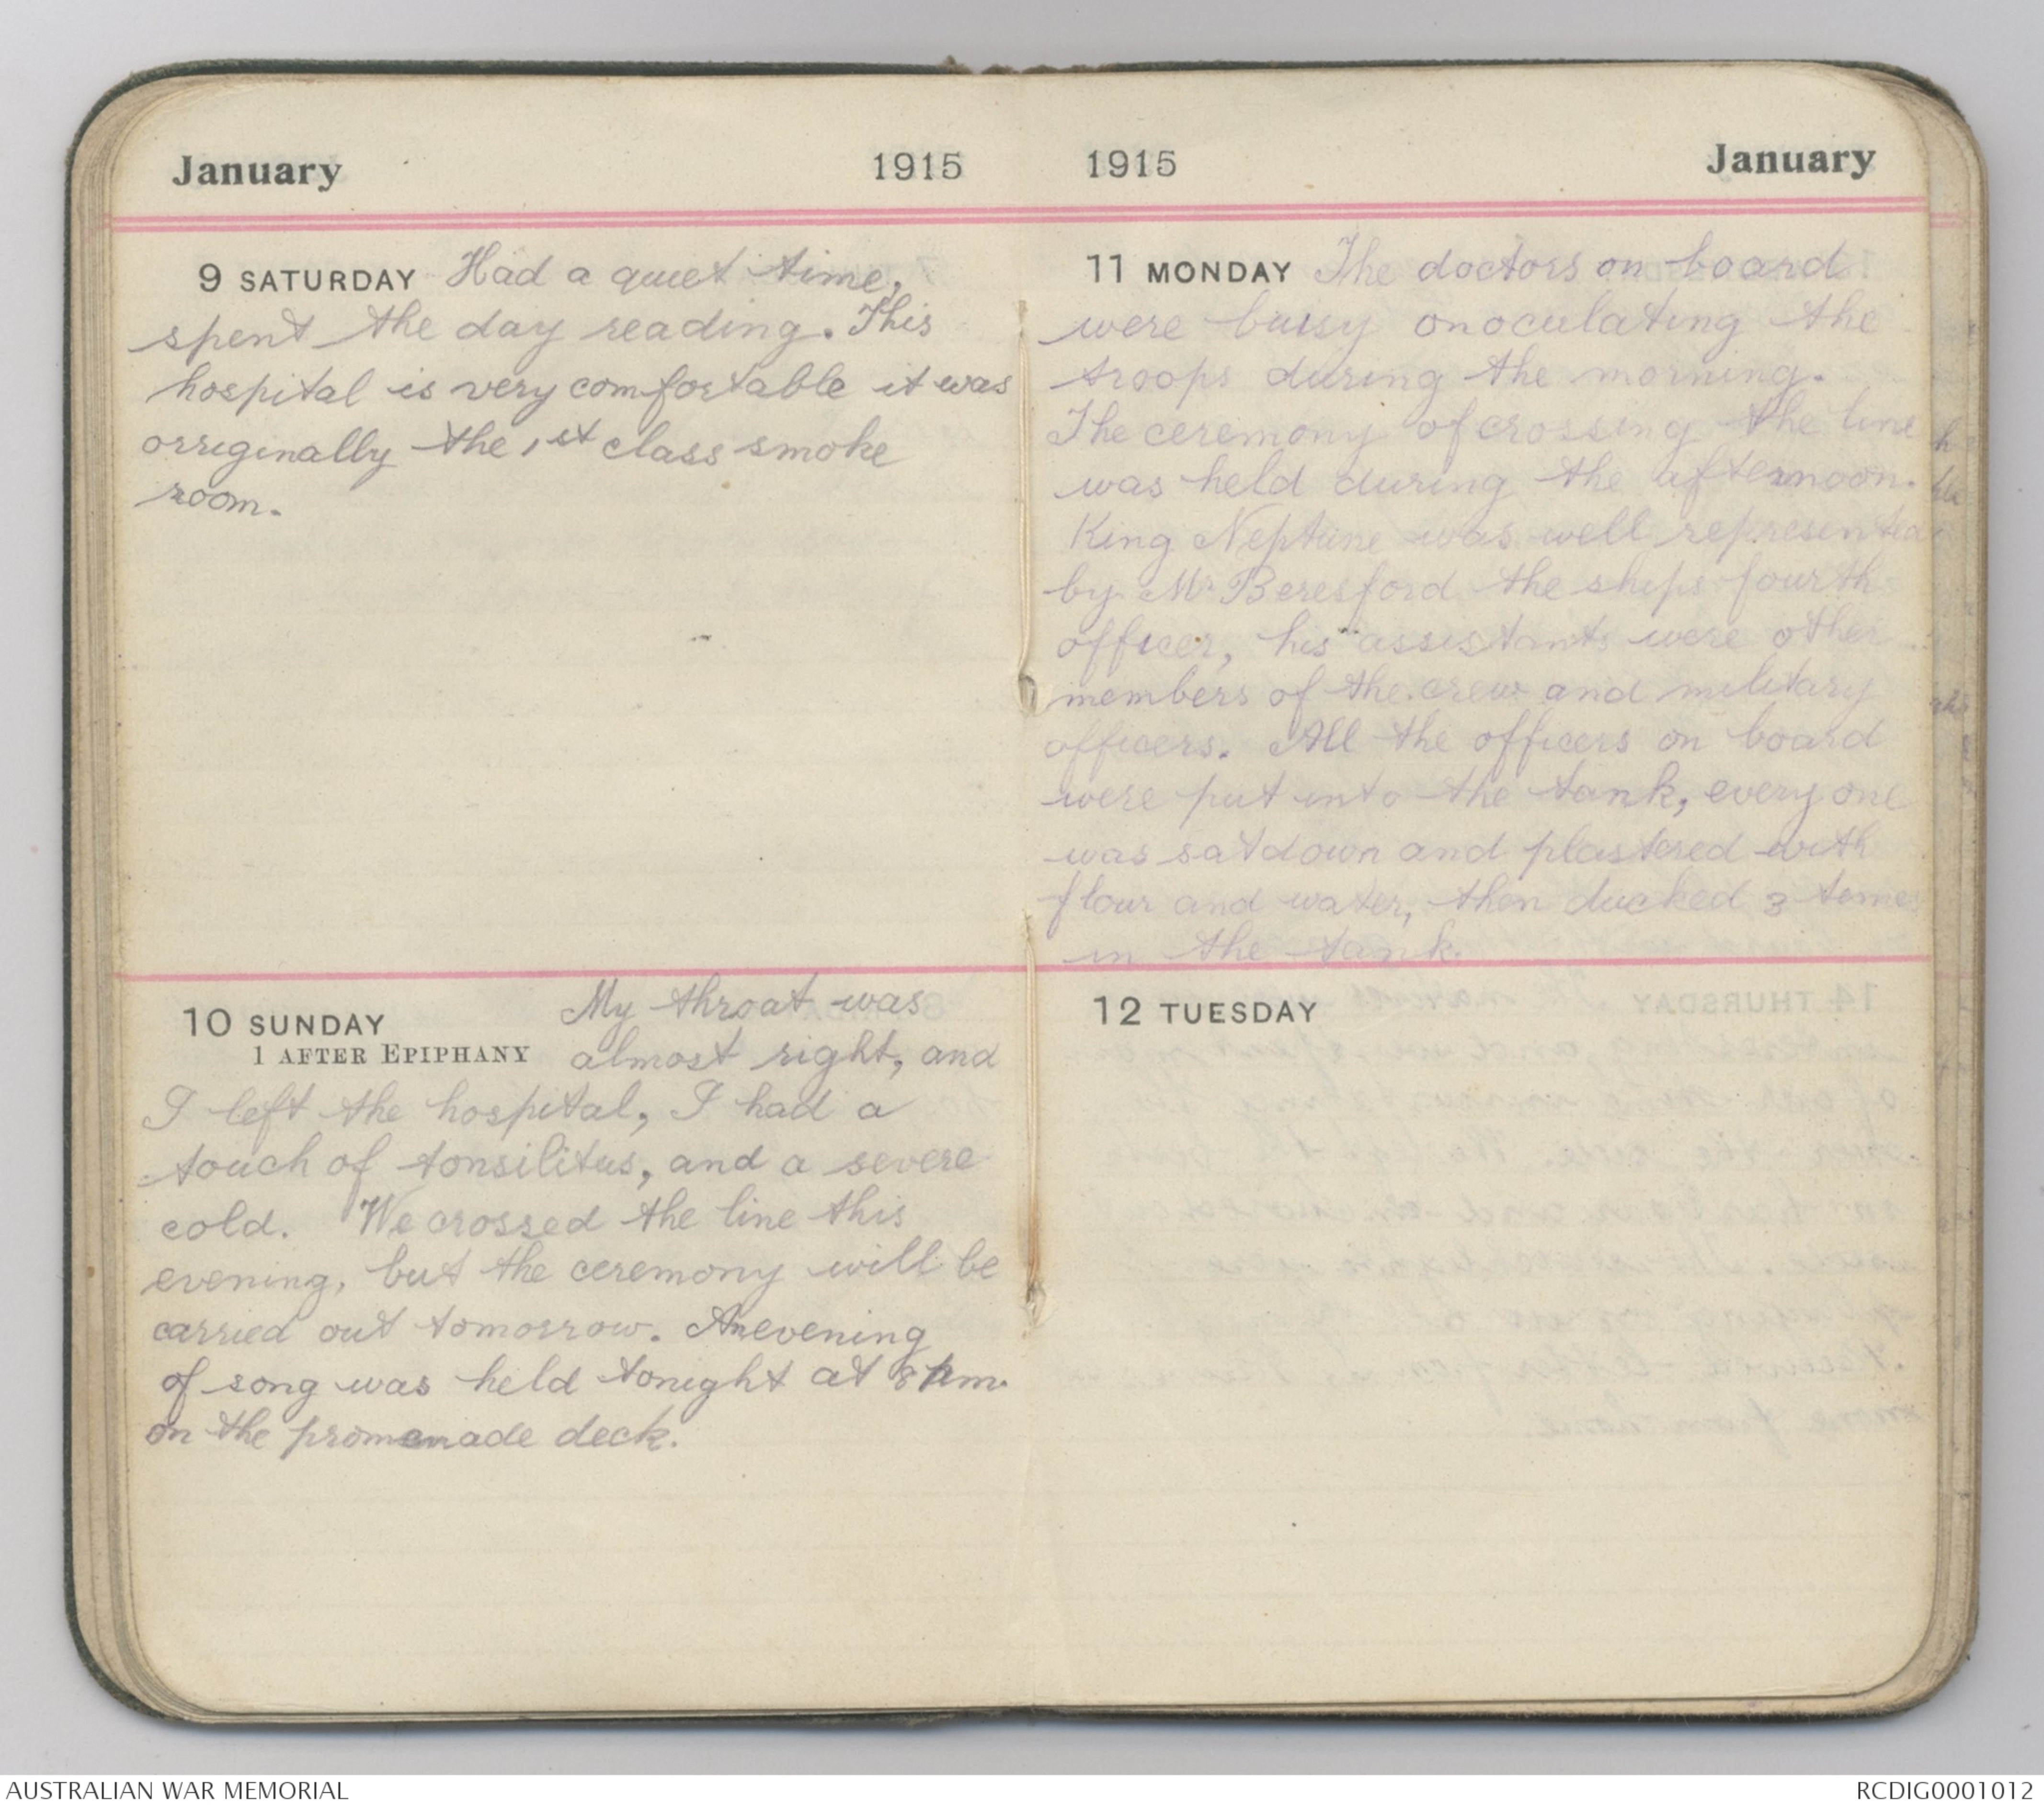 January 1915
9 SATURDAY Had a quiet time,
spent the day reading. This
hospital is very comfortable it was
orriginally the 1st class smoke
room.
10 SUNDAY
1 AFTER EPIPHANY
My throat was
almost right, and
I left the hospital, I had a
touch of tonsilitus, and a severe
cold. We crossed the line this
evening, but the ceremony will be
carried out tomorrow. An evening
of song was held tonight at 8 pm.
on the promenade deck.
1915 January
11 MONDAY The doctors on board
were buisy onoculating the
troops during the morning.
The ceremony of crossing the line
was held during the afternoon.
King Neptune was well represented
by Mr Beresford the ships fourth
officer, his assistants were other
members of the crew and military
officers. All the officers on board
were put into the tank, every one
was sat down and plastered with
flour and water, then ducked 3 times
in the tank.
12 TUESDAY
AUSTRALIAN WAR MEMORIAL
RCDIG0001012